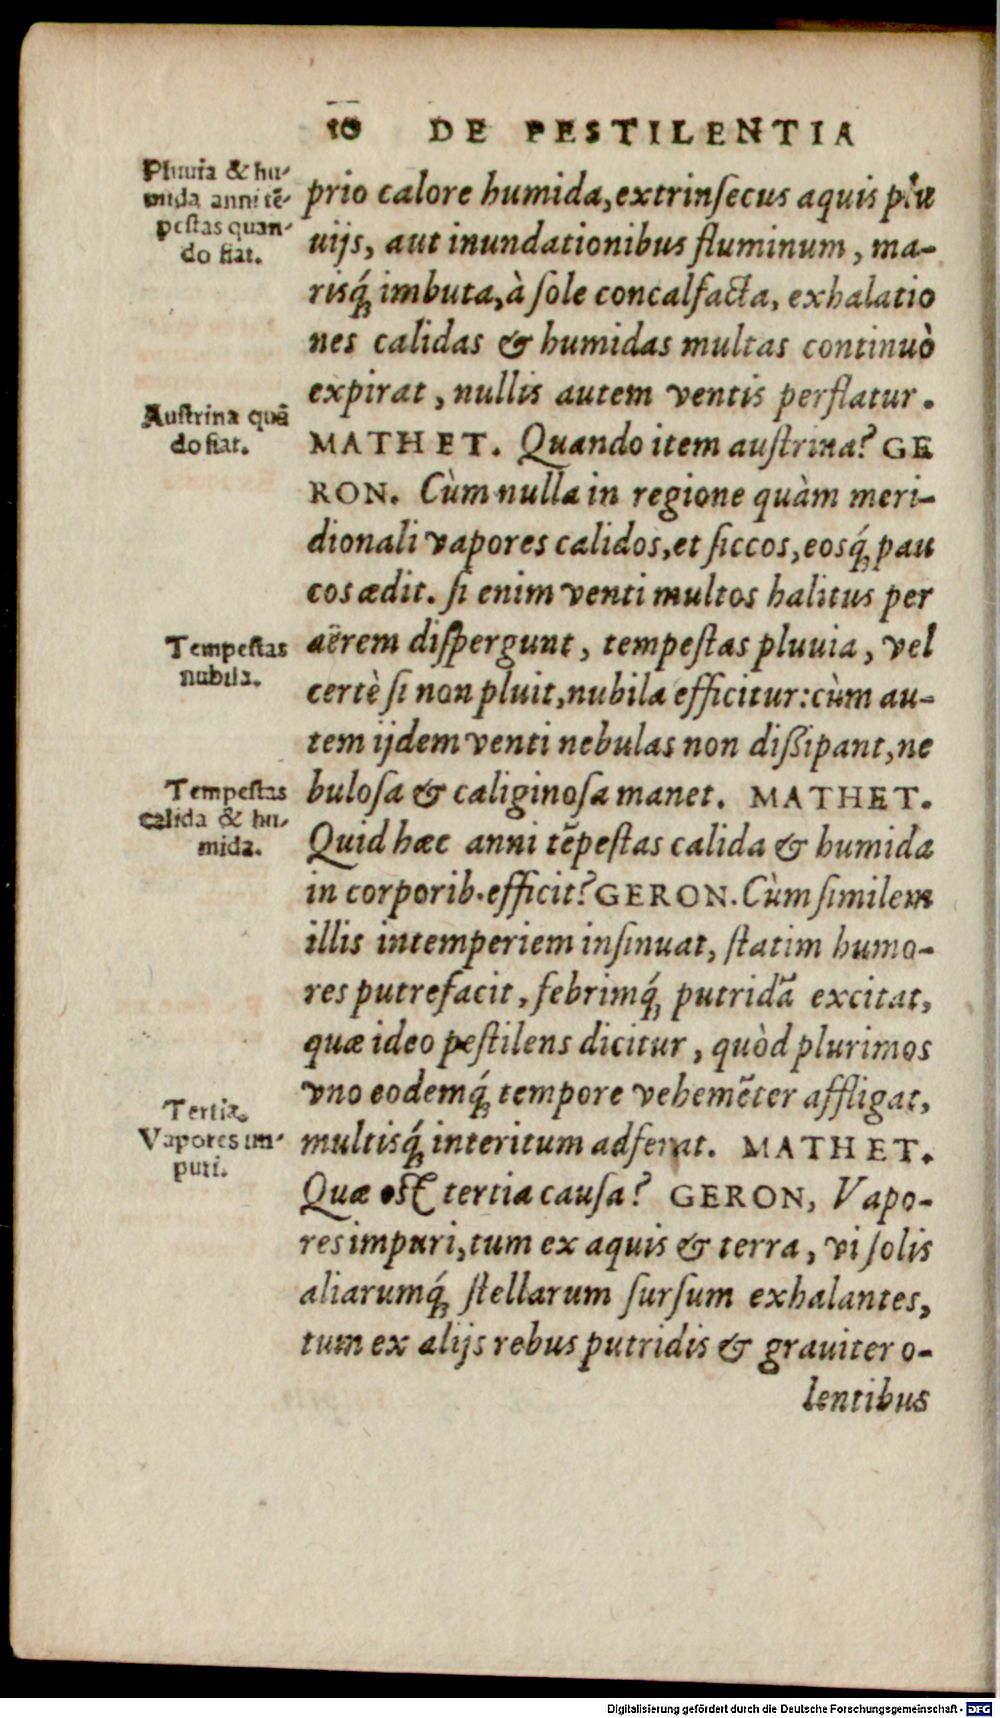 10 DE PESTILENTIA
Pluuia & hu-
mida anni tē-
pestas quan-
do fiat.
prio calore humida, extrinſecus aquis plu
uijs, aut inundationibus fluminum, ma-
risq́; imbuta, à ſole concalfacta, exhalatio
nes calidas & humidas multas continuò
expirat, nullis autem ventis perflatur.
Auſtrina quā
do fiat.
MATHET. Quando item auſtrina? GE
RON. Cùm nulla in regione quàm meri-
dionali vapores calidos, et ſiccos, eosq́; pau
cos ædit. ſi enim venti multos halitus per
Tempeſtas
nubila.
aërem diſpergunt, tempeſtas pluuia, vel
certè ſi non pluit, nubila efficitur: cùm au-
tem ijdem venti nebulas non diſsipant, ne
Tempeſtas
calida & hu-
mida.
buloſa & caliginoſa manet. MATHET.
Quid hæc anni tēpeſtas calida & humida
in corporib. efficit? GERON. Cùm ſimilem
illis intemperiem inſinuat, ſtatim humo-
res putrefacit, febrimq́; putridā excitat,
quæ ideo peſtilens dicitur, quòd plurimos
vno eodemq́; tempore vehemēter affligat,
Tertia.
Vapores im-
puri.
multisq́; interitum adferat. MATHET.
Quæ eſt tertia cauſa? GERON, Vapo-
res impuri, tum ex aquis & terra, vi ſolis
aliarumq́; ſtellarum ſurſum exhalantes,
tum ex alijs rebus putridis & grauiter o-
lentibus
Digitalisierung gefördert durch die Deutsche Forschungsgemeinschaft - DFG